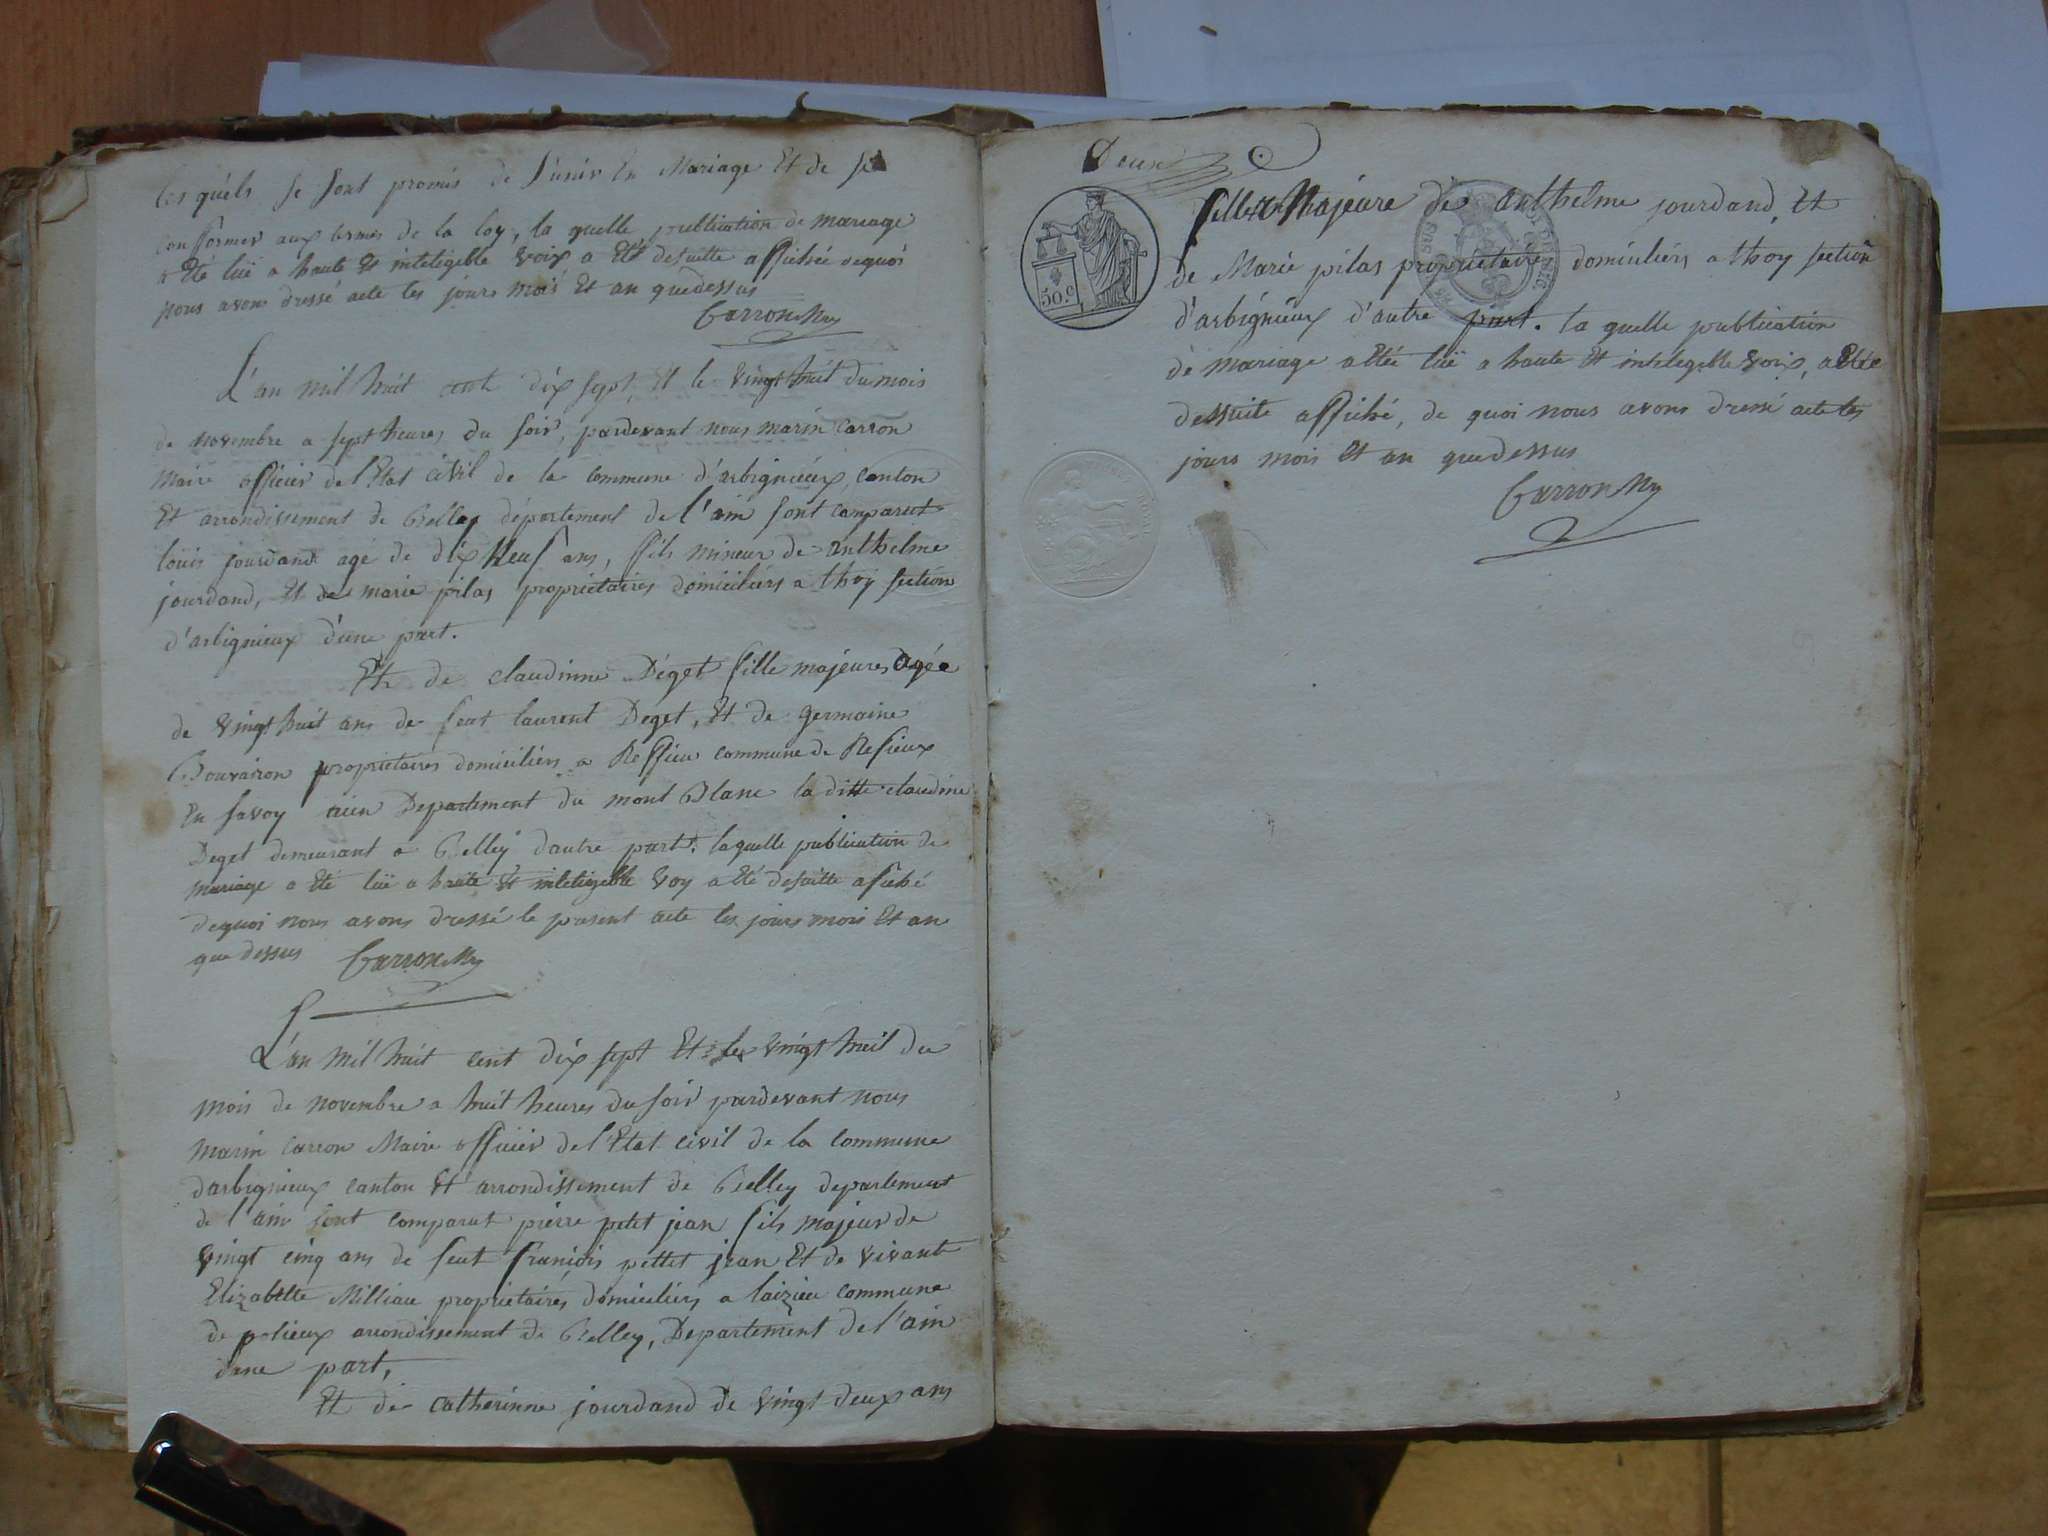 les quels se sont promis de s'unir En Mariage Et de se
Conformer aux termes de la loy, la quelle publication de mariage
a Eté luë a haute Et inteligible voix a Eté desuitte affichée dequoi
nous avons dressé acte les jours mois Et an quedessus
Carron My
L'an mil huit cent dix sept, Et le vingt huit du mois
de novembre a sept heures du soir, pardevant nous marin carron
Maire officier de l'Etat civil de la commune d'arbignieux, canton
Et arrondissement de Belley département de l'ain sont comparut
louis jourdand agé de dix Neuf ans, fils mineur de anthelme
jourdand, Et de marie pilas propriétaires domiciliérs a thoy section
d'arbignieux d'une part.
Et de claudinne Déget fille majeures agée
de vingt huit ans de feut laurent Deget, Et de germaine
Bouvairon propriétaires domiciliérs a Reffieu commune de Refieux
En savoy Departement du mont Blanc la ditte claudine
Deget demeurant a Belley d'autre part. laquelle publication de
mariage a Eté luë a haute Et inteligeble voy a Eté desuitte afiché
dequoi nous avons dressé le present acte les jours mois Et an
que dessus Carron My
L'an mil huit cent dix sept Et le vingt huit du
mois de novembre a huit heures du soir pardevant nous
marin carron Maire officier de l'Etat civil de la commune
darbignieux canton Et arrondissement de Belley departement
de l'ain sont comparut pierre petit jean fils majeur de
vingt cinq ans de feut francois pettet jean Et de vivante
Elizabette Milliau propriétaires domiciliérs a laizieu commune
de polieux arrondissement de Belley, Departement de l'ain
dune part,
Et de catherinne jourdand de vingt deux ans
Deux
fille Majeure de anthelme jourdand, Et
de Marie pilas propriétaires domiciliérs a thoy section
d'arbignieux d'autre part. la quelle publication
de mariage a Etée luë a haute Et intelegeble voix, a Etée
dessuite affiché, de quoi nous avons dressé acte les
jours mois Et an quedessus
Carron My
50.c